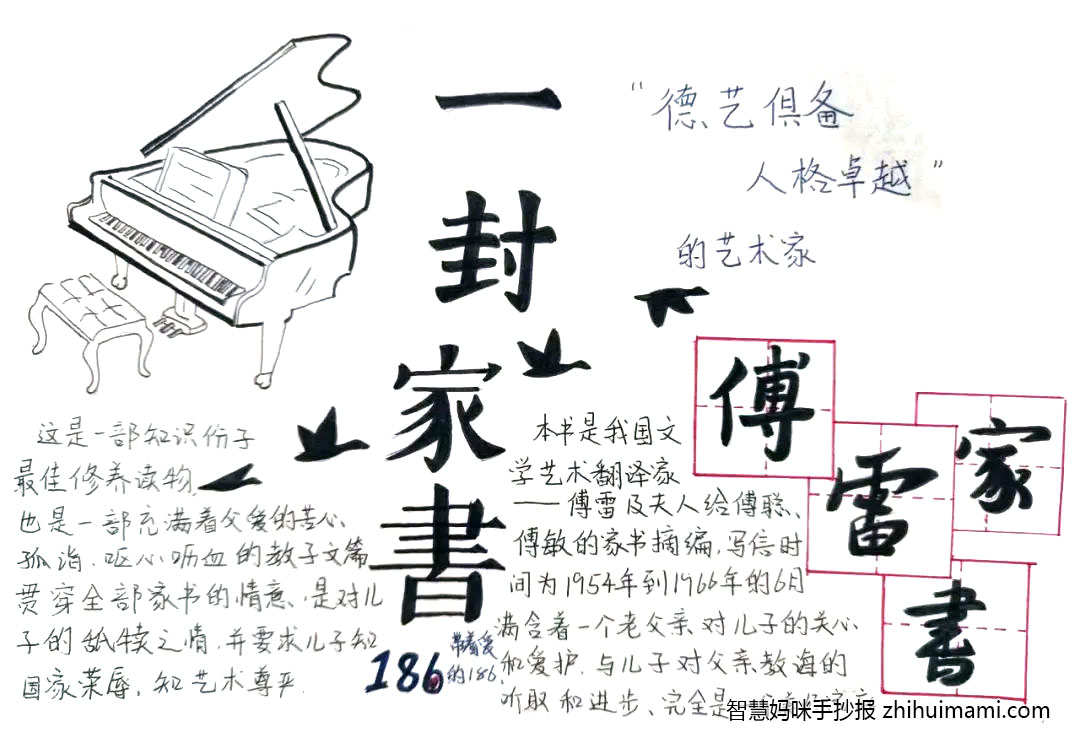 一封家書
"德艺俱备
人格卓越"
的艺术家
傅雷家書
这是一部知识份子
最佳修养读物
也是一部充满着父爱的苦心
孤诣、呕心呖血的教子文篇
贯穿全部家书的情意、是对儿
子的舐犊之情,并要求儿子知
国家荣辱,知艺术尊严.
186
带着爱
的186
本书是我国文
学艺术翻译家
——傅雷及夫人给傅聪、
傅敏的家书摘编,写信时
间为1954年到1966年的6月
满含着一个老父亲对儿子的关心
和爱护.与儿子对父亲教诲的
听取和进步、完全是
智慧妈咪手抄报 zhihuimami.com